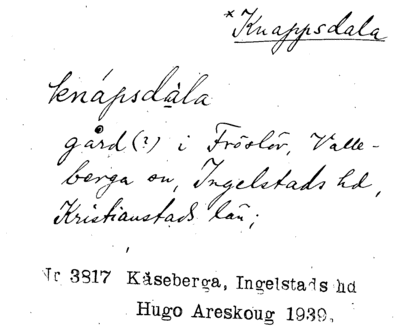 *Knappsdala
knápsdàla
gård (?) i Fröslöv, Valle-
berga sn, Ingelstads hd,
Kristianstads län;
Nr 3817 Kåseberga, Ingelstads hd
Hugo Areskoug 1939.